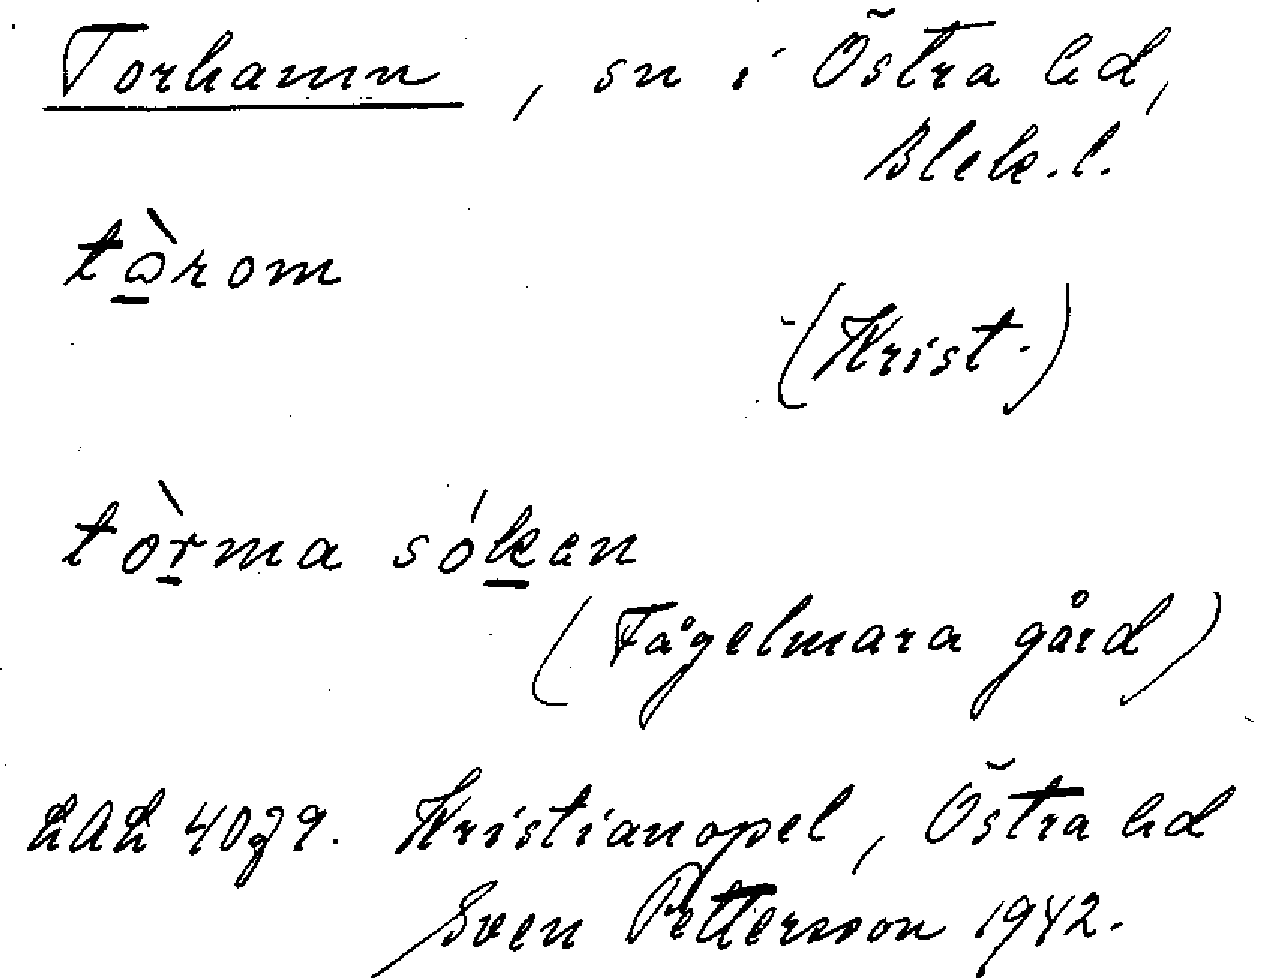 Torhamn, sn i Östra hd,
Blek. l.
tɔ̀rom
(Krist.)
tòrma sóken
(Fågelmara gård)
LAL 4079. Kristianopel, Östra hd
Sven Pettersson 1942.